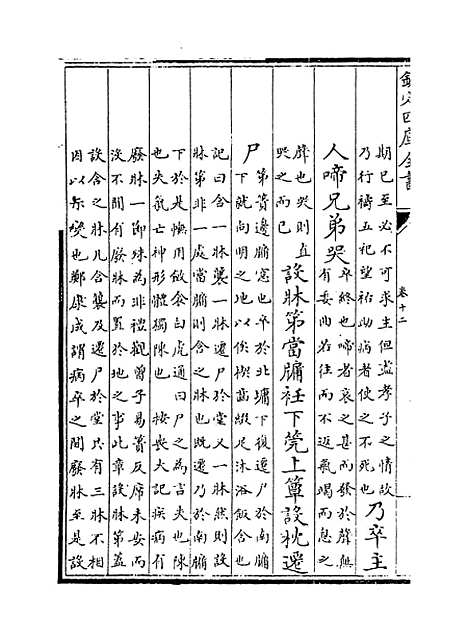 欽定四庫全書
卷十二
期已至必不可求生但盡孝子之情故
乃行禱五祀望祐助病者使之不死也
乃卒主
人啼兄弟哭
卒終也啼者哀之甚而發於聲無
有委曲若往而不返氣竭而息之
聲也哭則直
哭之而已
設牀第當牖衽下莞上簟設枕遷
尸
第簀邊牖窓也卒於北墉下復遷尸於南牖
下就向明之地以俟楔齒綴足沐浴飯含也
記曰含一牀襲一牀遷尸於堂又一牀然則設
牀第非一處當牖則含之牀也既遷乃於南牖
下於是幠用斂衾白虎通曰尸之為言失也陳
也失氣亡神形體獨陳也 按喪大記疾病有
廢牀一節殊為非禮觀曾子易簀反席未安而
沒不聞有廢牀而置於地之事此章設牀第蓋
設含之牀凡含襲及遷尸於堂只有三牀不相
因以示變也鄭康成謂病卒之間廢牀至是設